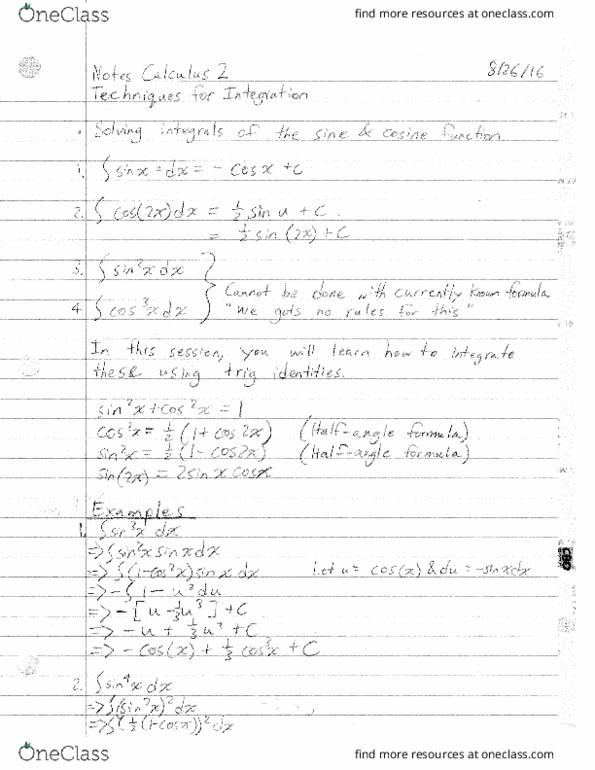 OneClass
find more resources at oneclass.com
Notes Calculus 2 8/26/16
Techniques for Integration
• Solving integrals of the sine & cosine function
1. ∫ sinx = dx = - cosx + c
2. ∫ cos(2x)dx = ½ sin u + C.
= ½ sin (2x) + C
3. ∫ sin²x dx
4. ∫ cos³x dx
Cannot be done with currently known formula.
"We gots no rules for this"
In this session, you will learn how to integrate
these using trig identities.
sin²x + cos²x = 1
cos²x = ½ (1 + cos 2x) (Half-angle formula)
sin²x = ½ (1 - cos2x) (Half-angle formula)
sin(2x) = 2 sin x cosx
Examples
1. ∫ sin³x dx
=> ∫ sin²x sin x dx
=> ∫ (1-cos²x) sin x dx Let u = cos(x) & du = -sinxdx
=> - ∫ 1 - u² du
=> - [u - ⅓u³] + C
=> - u + ⅓ u³ + C
=> - cos(x) + ⅓ cos³x + C
2. ∫ sin⁴x dx
=> ∫ (sin²x)² dx
=> ∫ (½ (1-cosx))² dx
OneClass
find more resources at oneclass.com